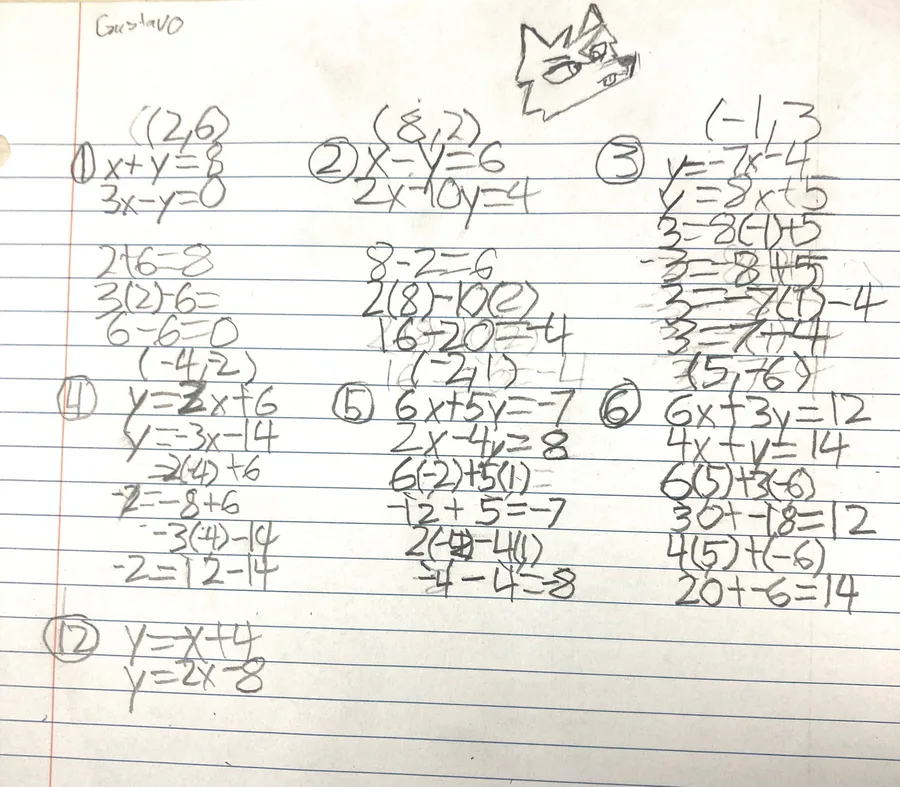 Gustavo
(2,6)
① x+y=8
3x-y=0
2+6=8
3(2)-6=
6-6=0
(8,2)
② x-y=6
2x-10y=4
8-2=6
2(8)-10(2)
16-20=-4
(-1,3
③ y=-7x-4
y=8x+5
3=8(-1)+5
-3=-8+5
3=-7(1)-4
3=7+4
(-4,2)
④ y=2x+6
y=-3x-14
2(-4)+6
-2=-8+6
-3(-4)-14
-2=12-14
(-2,1)
⑤ 6x+5y=-7
2x-4y=8
6(-2)+5(1)
-12+5=-7
2(-2)-4(1)
-4-4=-8
(5,-6)
⑥ 6x+3y=12
4x+y=14
6(5)+3(-6)
30+-18=12
4(5)+(-6)
20+-6=14
⑫ y=x+4
y=2x-8